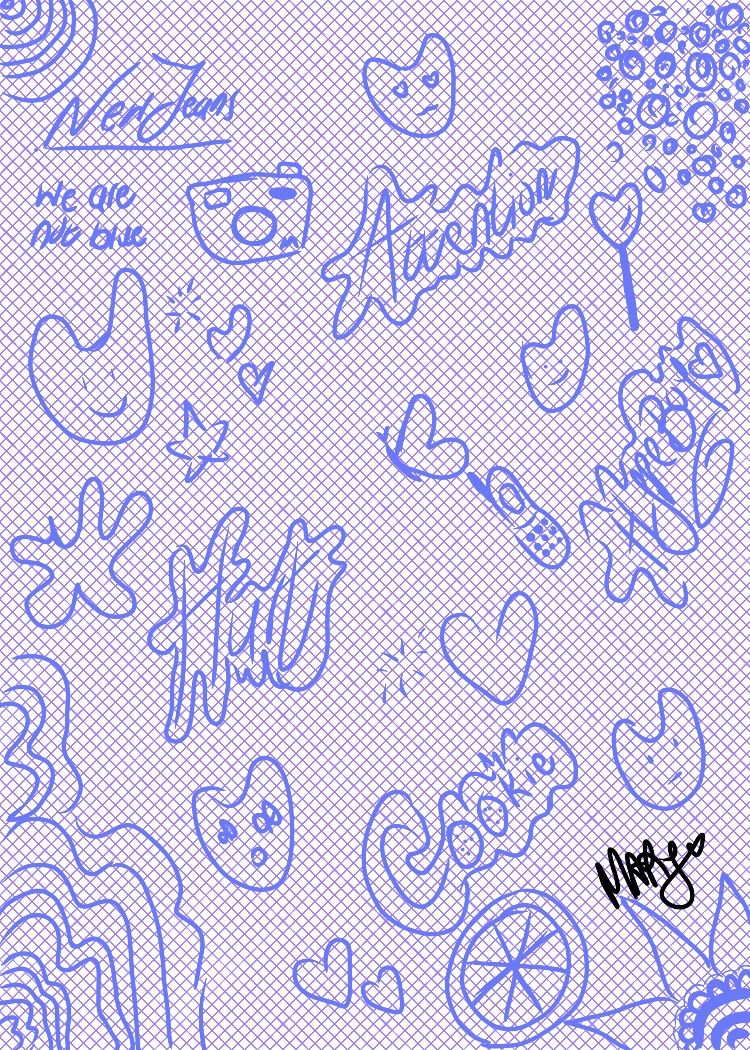 NewJeans
We are
not blue
Attention
Hype Boy
Hurt
Cookie